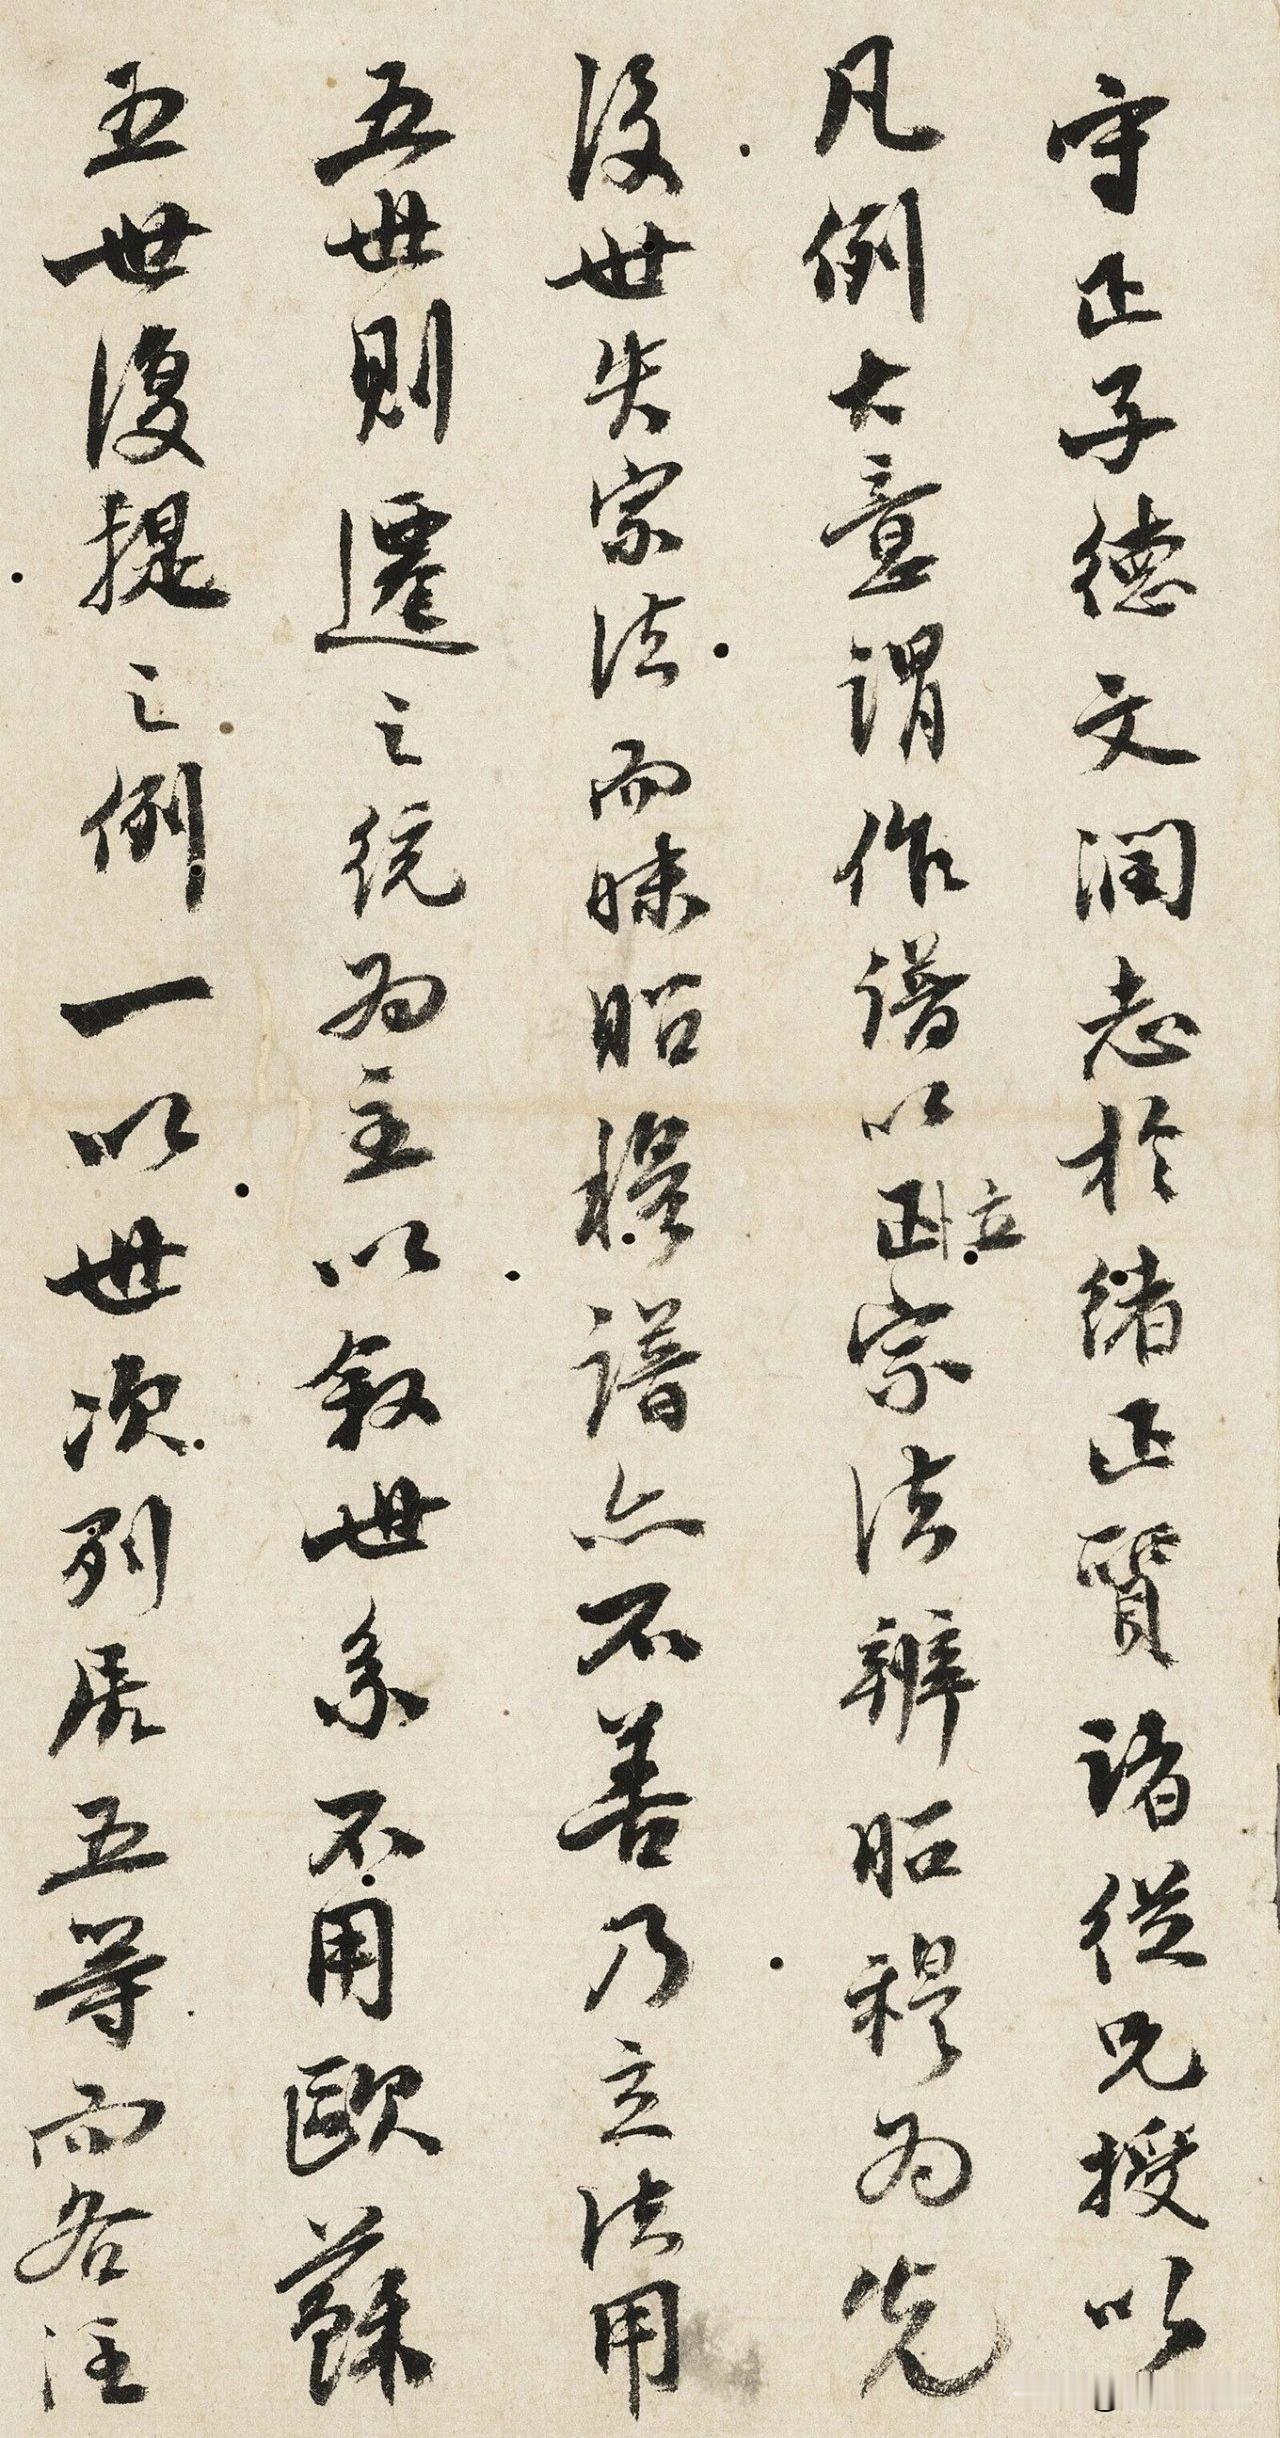 守正子德文润志於绪正質諸從兄授以
凡例大意謂作譜以正立宗法辨昭穆为先
後世失宗法而昧昭穆譜亦不善乃立法用
五世則遷之統为主以叙世系不用歐蘇
五世復提之例一以世次列居五等而各注